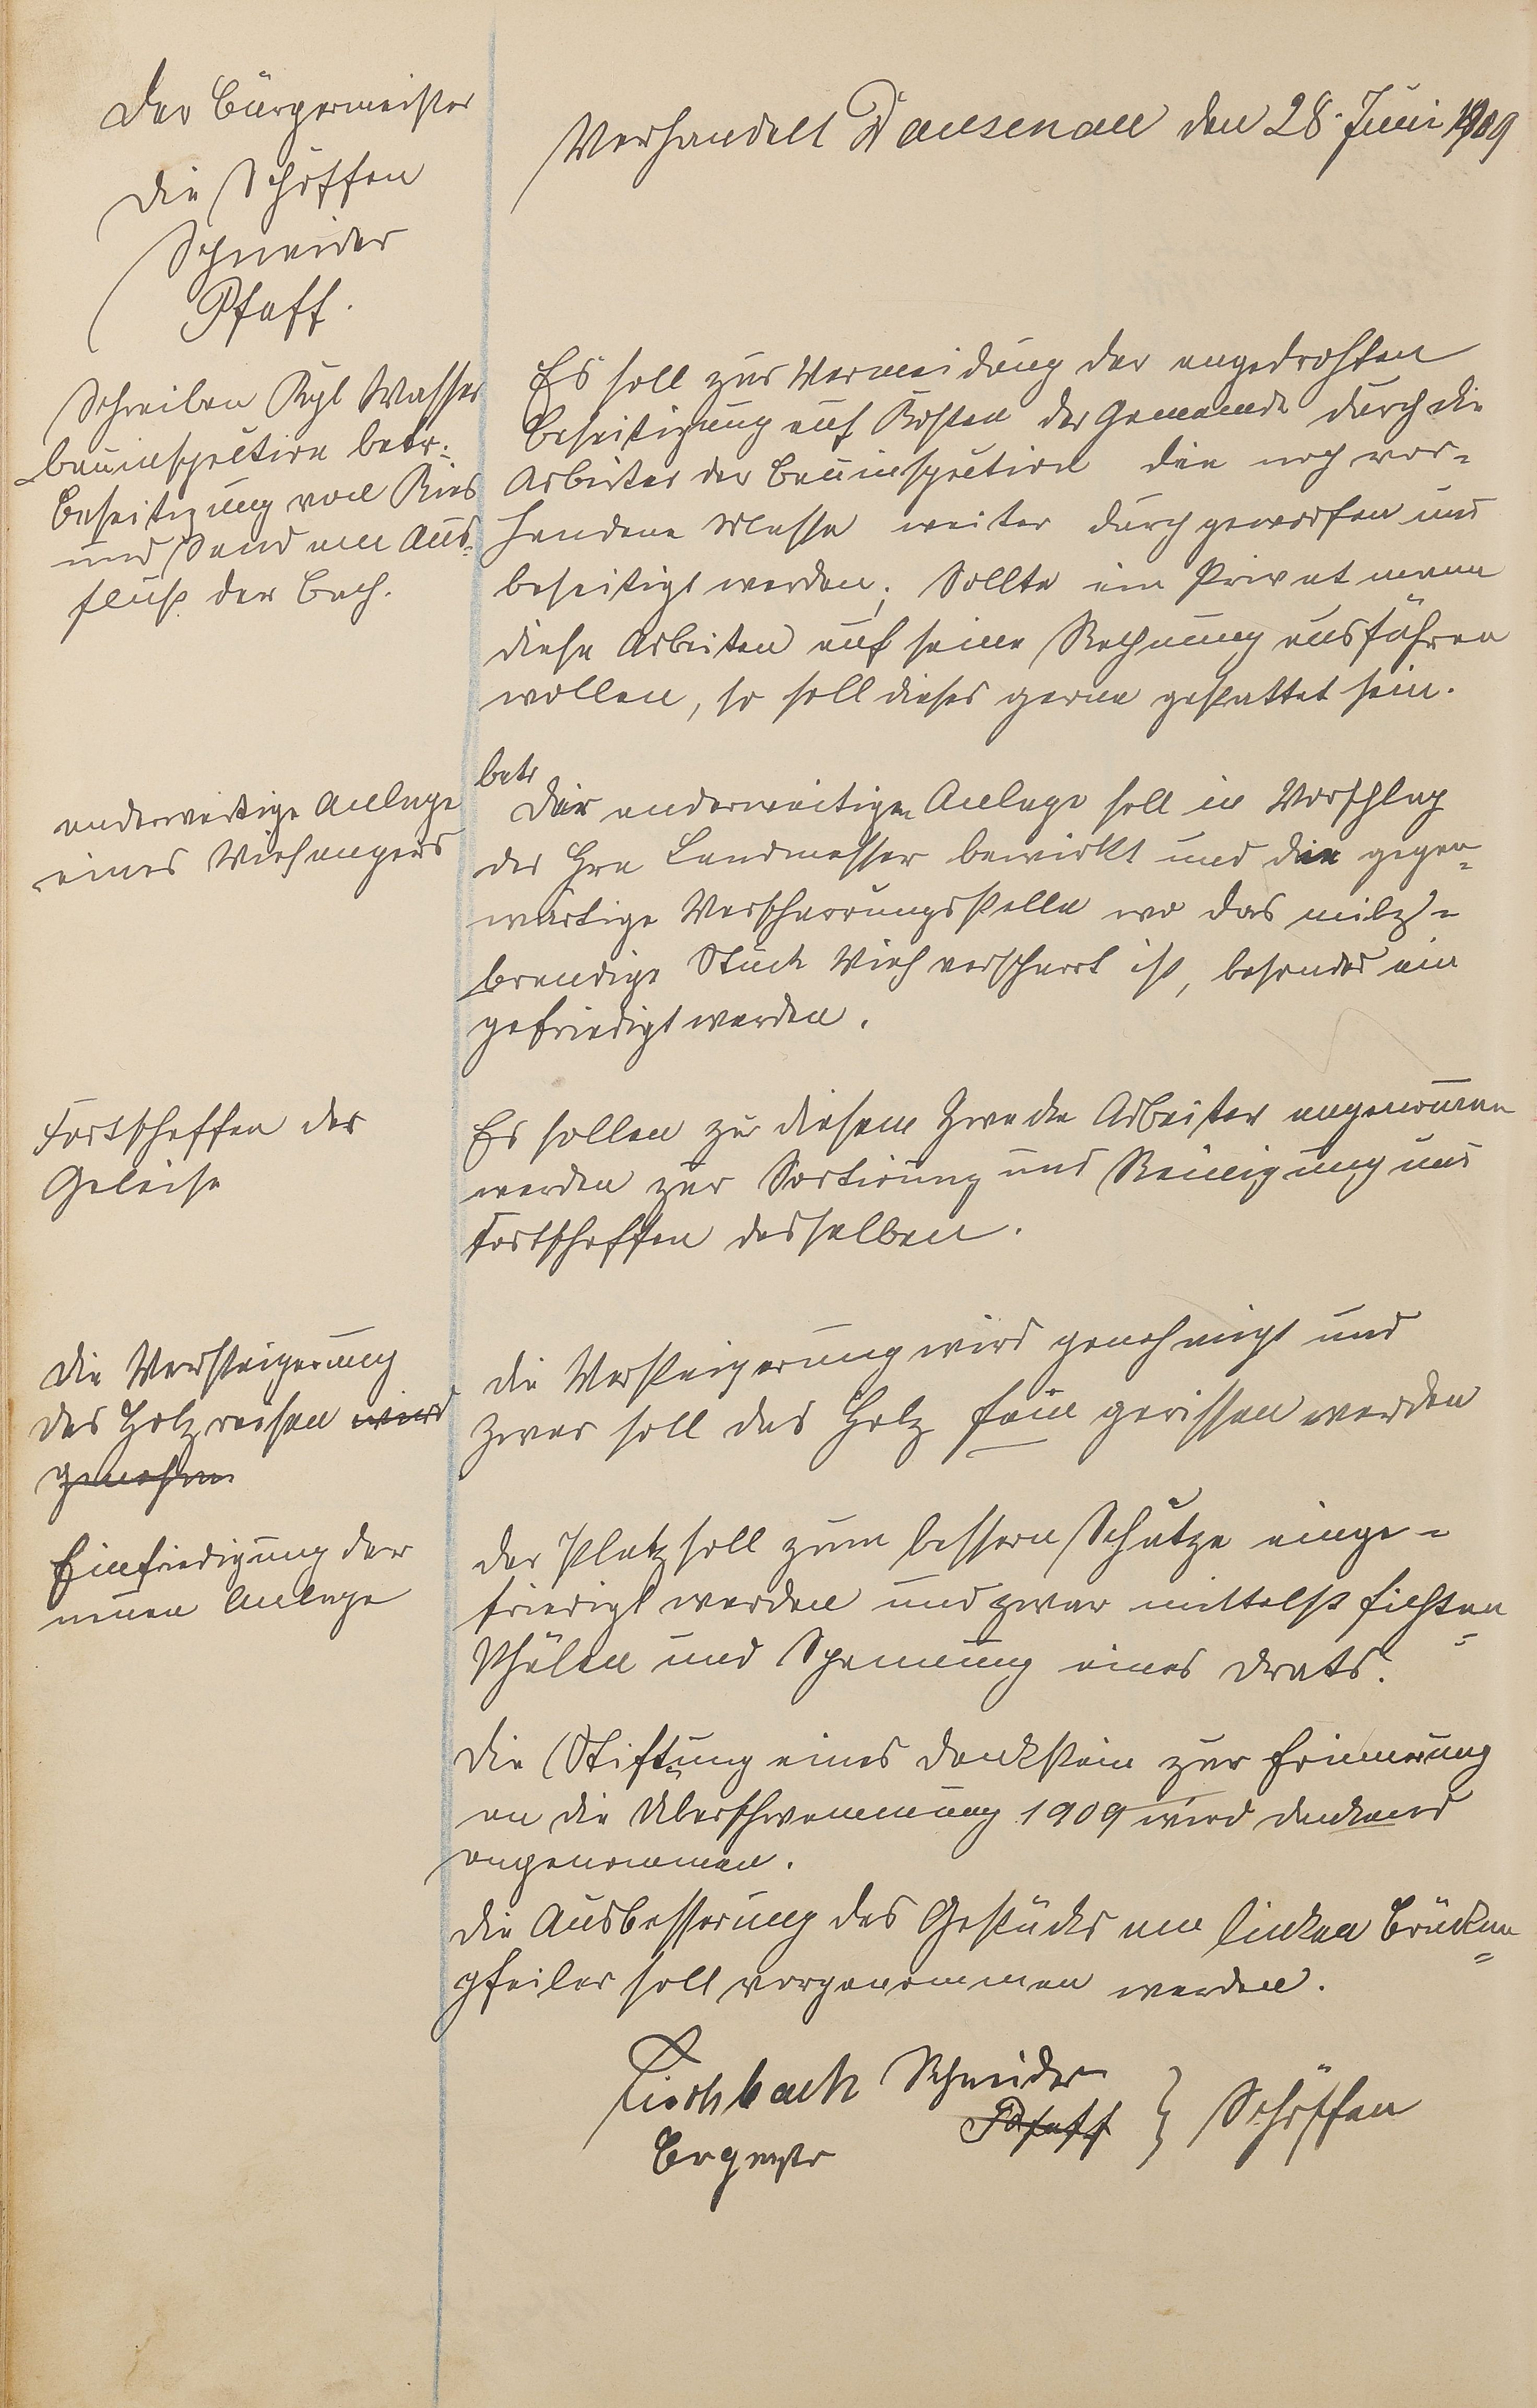 Der Bürgermeister
Die Schöffen
Schneider
Pfaff.
Verhandelt Dausenau den 28. Juni 1909
Schreiben Kgl Wasser
bauinspection betr.
Beseitigung von Kies
und Sand am Aus-
fluß der Bach.
Es soll zur Vermeidung der angedrohten
Beseitigung auf Kosten der Gemeinde durch die
Arbeiter der Bauinspection die noch vor-
handene Masse weiter durchgeworfen und
beseitigt werden. Sollte ein Privatmann
diese Arbeiten auf seine Rechnung ausführen
wollen, so soll dieses gerne gestattet sein.
anderweitige Anlage
eines Viehangers
betr
Der anderweitigen Anlage soll in Vorschlag
des Hrn Landmesser bewirkt und die gegen-
wärtige Verscharrungsstelle wo das milz-
brandige Stück Vieh verscharrt ist, besonder ein
gefriedigt werden.
Fortschaffen der
Geleise
Es sollen zu diesem Zwecke Arbeiter angenommen
werden zur Sortirung und Reinigung und
Fortschaffen desselben.
Die Versteigerung
des Holzreisen wird
genehm
Die Versteigerung wird genehmigt und
zwar soll das Holz fein gerissen werden
Einfriedigung der
neuen Anlage
Der Platz soll zum bessern Schutze einge-
friedigt werden und zwar mittelst fichten-
Phälen und Spannung eines Drats.
Die Stiftung eines Denkstein zur Erinnerung
an die Überschwemmung 1909 wird dankend
angenommen.
Die Ausbesserung des Gestücks am linken Brücken-
pfeiler soll vorgenommen werden.
Fischbach Schneider
Pfaff } Schöffen
Brgmstr